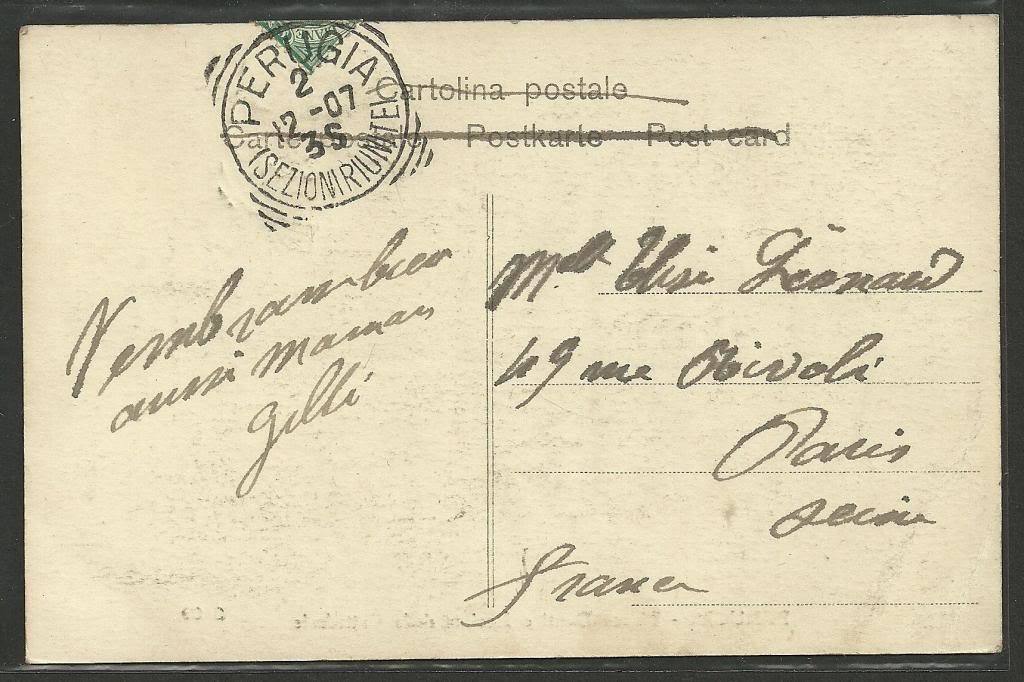 PERUGIA
2
12-07
3S
(SEZIONI RIUNITE)
Cartolina postale
Carte postale Postkarte Post card
aussi maman
Gilli
Melle Elise Léonard
49 rue Rivoli
Paris
Seine
France